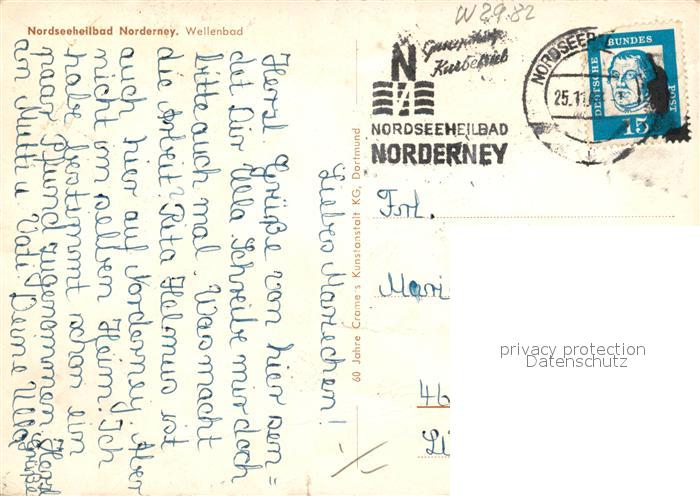 Nordseeheilbad Norderney. Wellenbad
W 29.82
N
Kurbetrieb
NORDSEEHEILBAD
NORDERNEY
25.11.
DEUTSCHE
BUNDES
POST
15
60 Jahre Cramers Kunstanstalt KG, Dortmund
Liebes Mariechen!
Herzl. Grüße von hier sen=
det Dir Ulla. Schreibe mir doch
bitte auch mal. Was macht
die Arbeit? Rita Helmus ist
auch hier auf Norderney. Aber
nicht im selben Heim. Ich
habe bestimmt schon ein
paar Pfund zugenommen. Herzl.
Grüße
an Mutti u. Vati. Deine Ulla
Frl.
Mari
46
privacy protection
Datenschutz